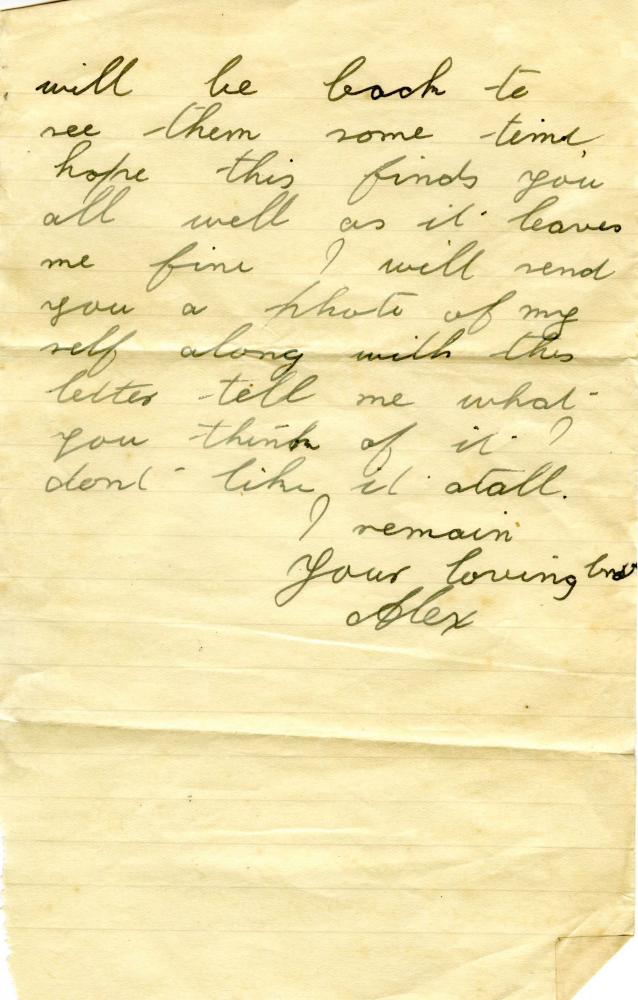 will be back to
see them some time,
hope this finds you
all well as it leaves
me fine I will send
you a photo of my
self along with this
letter tell me what
you think of it I
dont like it atall.
I remain
Your loving
Alex